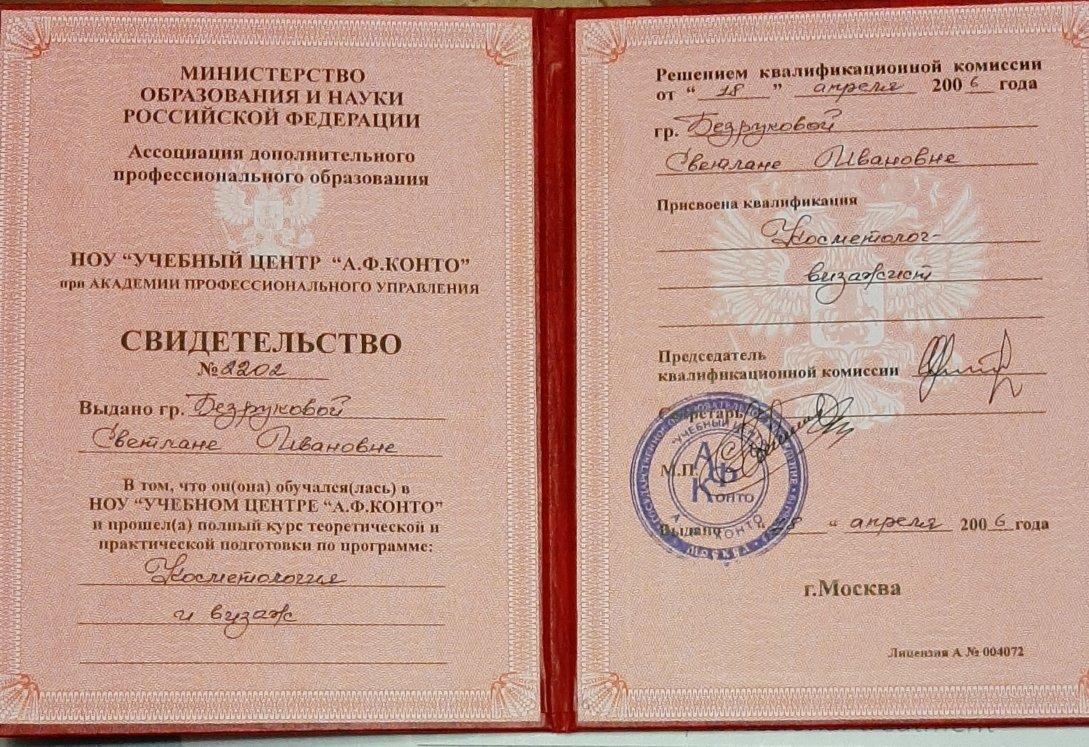 МИНИСТЕРСТВО
ОБРАЗОВАНИЯ И НАУКИ
РОССИЙСКОЙ ФЕДЕРАЦИИ
Ассоциация дополнительного
профессионального образования
НОУ “УЧЕБНЫЙ ЦЕНТР “А.Ф.КОНТО”
при АКАДЕМИИ ПРОФЕССИОНАЛЬНОГО УПРАВЛЕНИЯ
СВИДЕТЕЛЬСТВО
№ 2202
Выдано гр. Безруковой
Светлане Ивановне
В том, что он(она) обучался(лась) в
НОУ “УЧЕБНОМ ЦЕНТРЕ “А.Ф.КОНТО”
и прошел(а) полный курс теоретической и
практической подготовки по программе:
Косметология
и визаж
Решением квалификационной комиссии
от “ 18 ” апреля 2006 года
гр. Безруковой
Светлане Ивановне
Присвоена квалификация
Косметолог-
визажист
Председатель
квалификационной комиссии
Секретарь
М.П.
АФ
КОНТО
МОСКВА
Выдано “ апреля 2006 года
г.Москва
Лицензия А № 004072